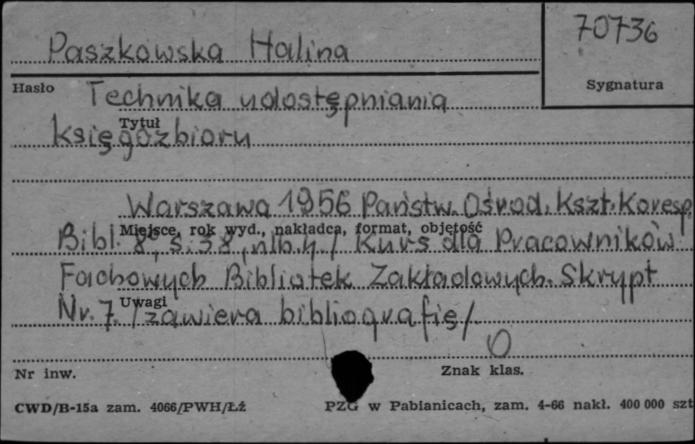 Paszkowska Halina
70736
Hasło
Sygnatura
Technika udostępniania
Tytuł
księgozbioru
Warszawa 1956 Państw. Ośrod. Kszt. Koresp.
Miejsce, rok wyd., nakładca, format, objętość
Bibl. 8°, s. 38, nlb. 4 / Kurs dla Pracowników
Fachowych Bibliotek Zakładowych. Skrypt
Uwagi
Nr. 7. /zawiera bibliografię/.
O
Nr inw.
Znak klas.
CWD/B-15a zam. 4066/PWH/Łź
PZG w Pabianicach, zam. 4-66 nakł. 400 000 szt